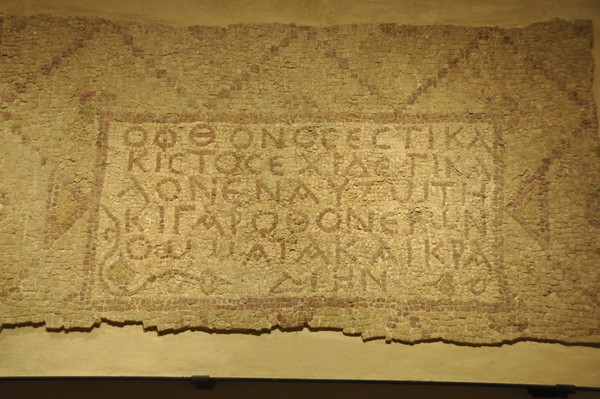 ΟΦΘΟΝΟϹΕϹΤΙΚΑ
ΚΙϹΤΟϹΕΧΙΔΕΤΙΚΑ
ΛΟΝΕΝΑΥΤΩΤΗ
ΚΙΓΑΡΦΘΟΝΕΡΩΝ
ΟΜΜΑΤΑΚΑΙΚΡΑ
ΔΙΗΝ